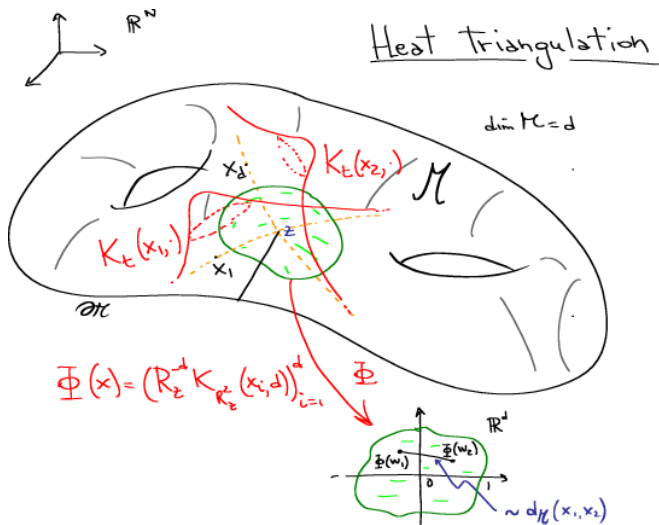 ℝᴺ
Heat Triangulation
dim ℳ = d
x_d
K_t(x₂,·)
ℳ
K_t(x₁,·)
z
x₁
∂ℳ
Φ(x) = (R_z^{-d} K_{R_z^2}(x_i,d))_{i=1}^d
Φ
ℝᵈ
Φ(w₁)
Φ(w₂)
0
1
~ d_ℳ(x₁,x₂)